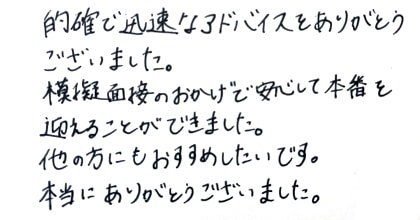 的確で迅速なアドバイスをありがとう
ございました。
模擬面接のおかげで安心して本番を
迎えることができました。
他の方にもおすすめしたいです。
本当にありがとうございました。